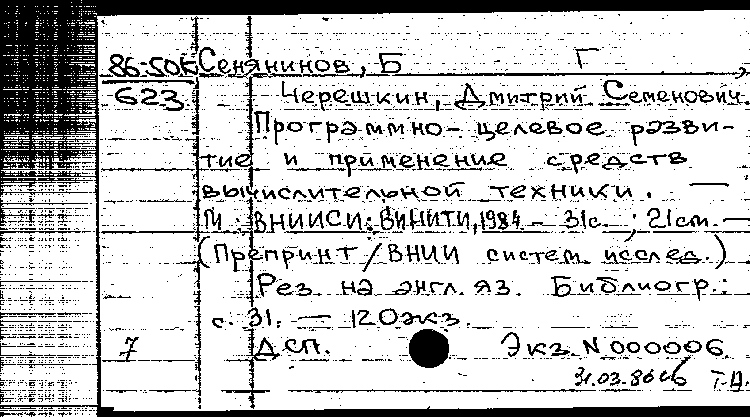 86:50К Сенянинов, Б Г,
623 Черешкин, Дмитрий Семенович.
Программно-целевое разви-
тие и применение средств
вычислительной техники. —
М.: ВНИИСИ: ВИНИТИ, 1984 - 31с.; 21см. -
(Препринт/ВНИИ систем. исслед.)
Рез. на англ. яз. Библиогр.:
с. 31. — 120экз.
7 ДСП. Экз. N 000006
31.03.86